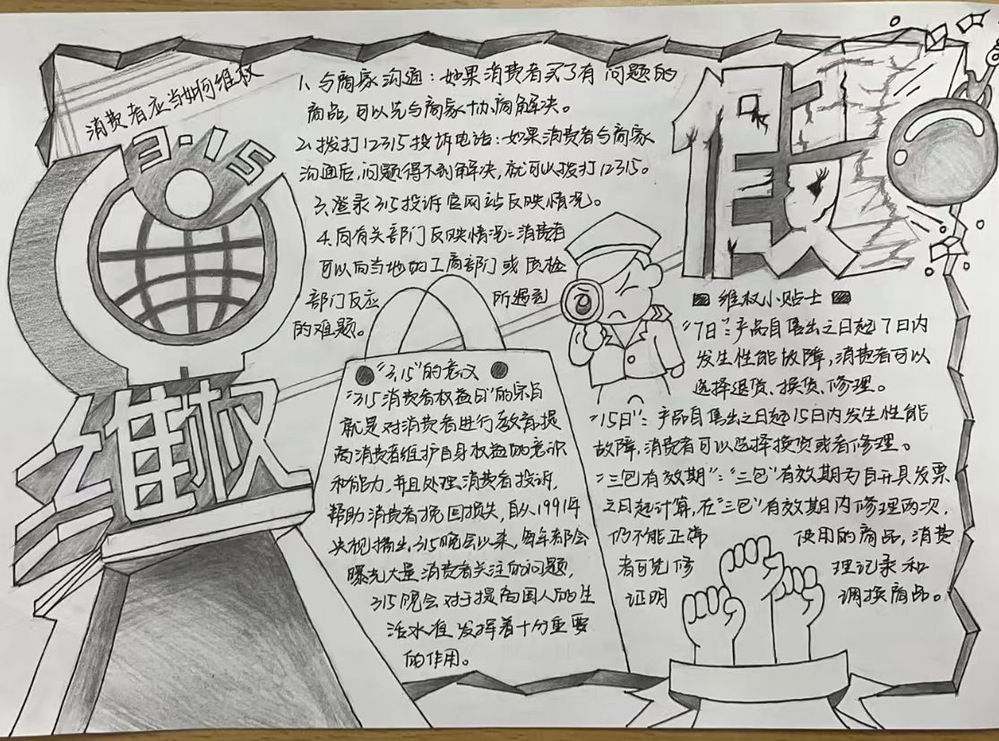 消费者应当如何维权
3·15
维权
1、与商家沟通：如果消费者买了有问题的
商品,可以先与商家协商解决。
2、拨打12315投诉电话:如果消费者与商家
沟通后,问题得不到解决,就可以拨打12315。
3、登录315投诉官网站反映情况。
4、向有关部门反映情况:消费者
可以向当地的工商部门或质检
部门反应所遇到
的难题。
“3.15”的意义
“315消费者权益日”的宗旨
就是对消费者进行教育,提
高消费者维护自身权益的意识
和能力,并且处理消费者投诉,
帮助消费者挽回损失,自从1991年
央视播出,315晚会以来,每年都会
曝光大量消费者关注的问题,
315晚会对于提高国人的生
活水准发挥着十分重要
的作用。
假
维权小贴士
“7日”:产品自售出之日起7日内
发生性能故障,消费者可以
选择退货、换货、修理。
“15日”:产品自售出之日起15日内发生性能
故障,消费者可以选择换货或者修理。
“三包有效期”:“三包”有效期为自开具发票
之日起计算,在“三包”有效期内修理两次,
仍不能正常使用的商品,消费
者可凭修理记录和
证明调换商品。